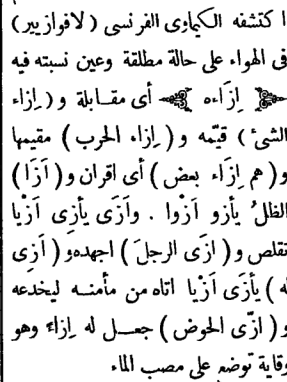 اكتشفه الكيماوى الفرنسى (لافوازيير)
فى الهواء على حالة مطلقة وعين نسبته فيه
إزَاءه أى مقابلة و(إزاء
الشئ) قيّمه و(إزاء الحرب) مقيمها
و(هم إزَاء بعض) أى اقران و(أزَا)
الظلُ يأزو أزْوا . وأزَى يأزِى أزْيا
تقلص و(ازَى الرجلَ) اجهده و(أزِى
له) يأزَى أزْيا اتاه من مأمنه ليخدعه
و(ازّى الحوض) جعل له إزاءً وهو
وقاية توضع على مصب الماء